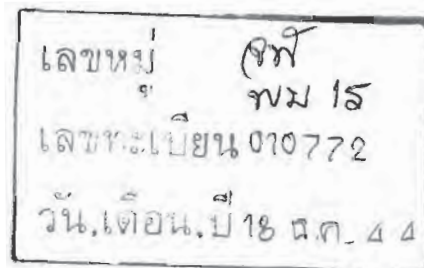 เลขหมู่ วพ
พม 15
เลขทะเบียน 010772
วัน.เดือน.ปี 18 ธ.ค. 44